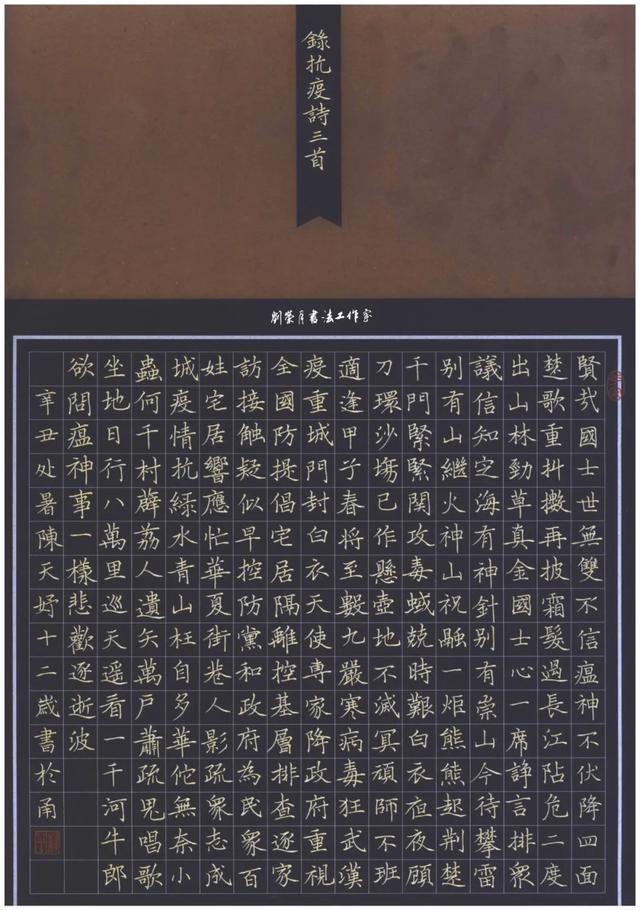 錄抗疫詩三首
書法工作室
賢哉國士世無雙不信瘟神不伏降四面
楚歌重抖擻再披霜髮遇長江阽危二度
出山林勁草真金國士心一席諍言排眾
議信知定海有神針別有崇山今待攀雷
別有山繼火神山祝融一炬熊熊起荆楚
千門緊緊関攻毒蜮兢時艱白衣夜夜顧
刀環沙塲已作懸壺地不滅冥頑師不班
適逢甲子春將至數九嚴寒病毒狂武漢
疫重城門封白衣天使專家降政府重視
全國防提倡宅居隔離控基層排查逐家
訪接觸疑似早控防黨和政府為民眾百
姓宅居響應忙華夏街巷人影疏眾志成
城疫情抗綠水青山枉自多華佗無奈小
蟲何千村薜荔人遺矢萬戶蕭疏鬼唱歌
坐地日行八萬里巡天遥看一千河牛郎
欲問瘟神事一樣悲歡逐逝波
辛丑处暑陳天妤十二歲書於甬